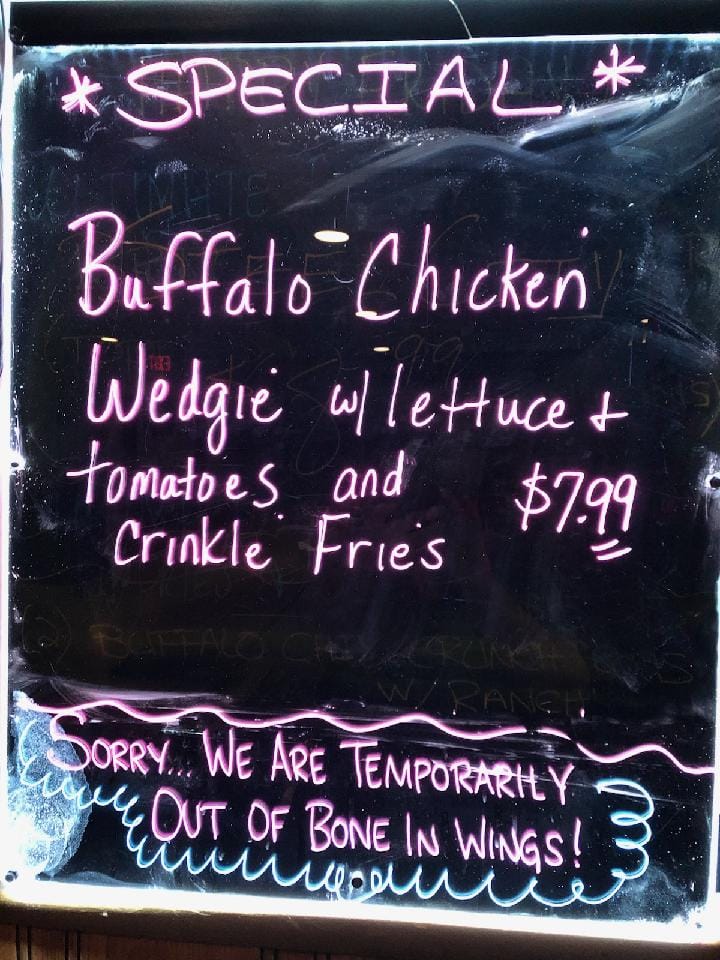 * SPECIAL *
Buffalo Chicken
Wedgie w/ lettuce +
tomatoes and $7.99
Crinkle Fries
(2) BUFFALO CRUNCH
W/ RANCH
SORRY... WE ARE TEMPORARILY
OUT OF BONE IN WINGS!